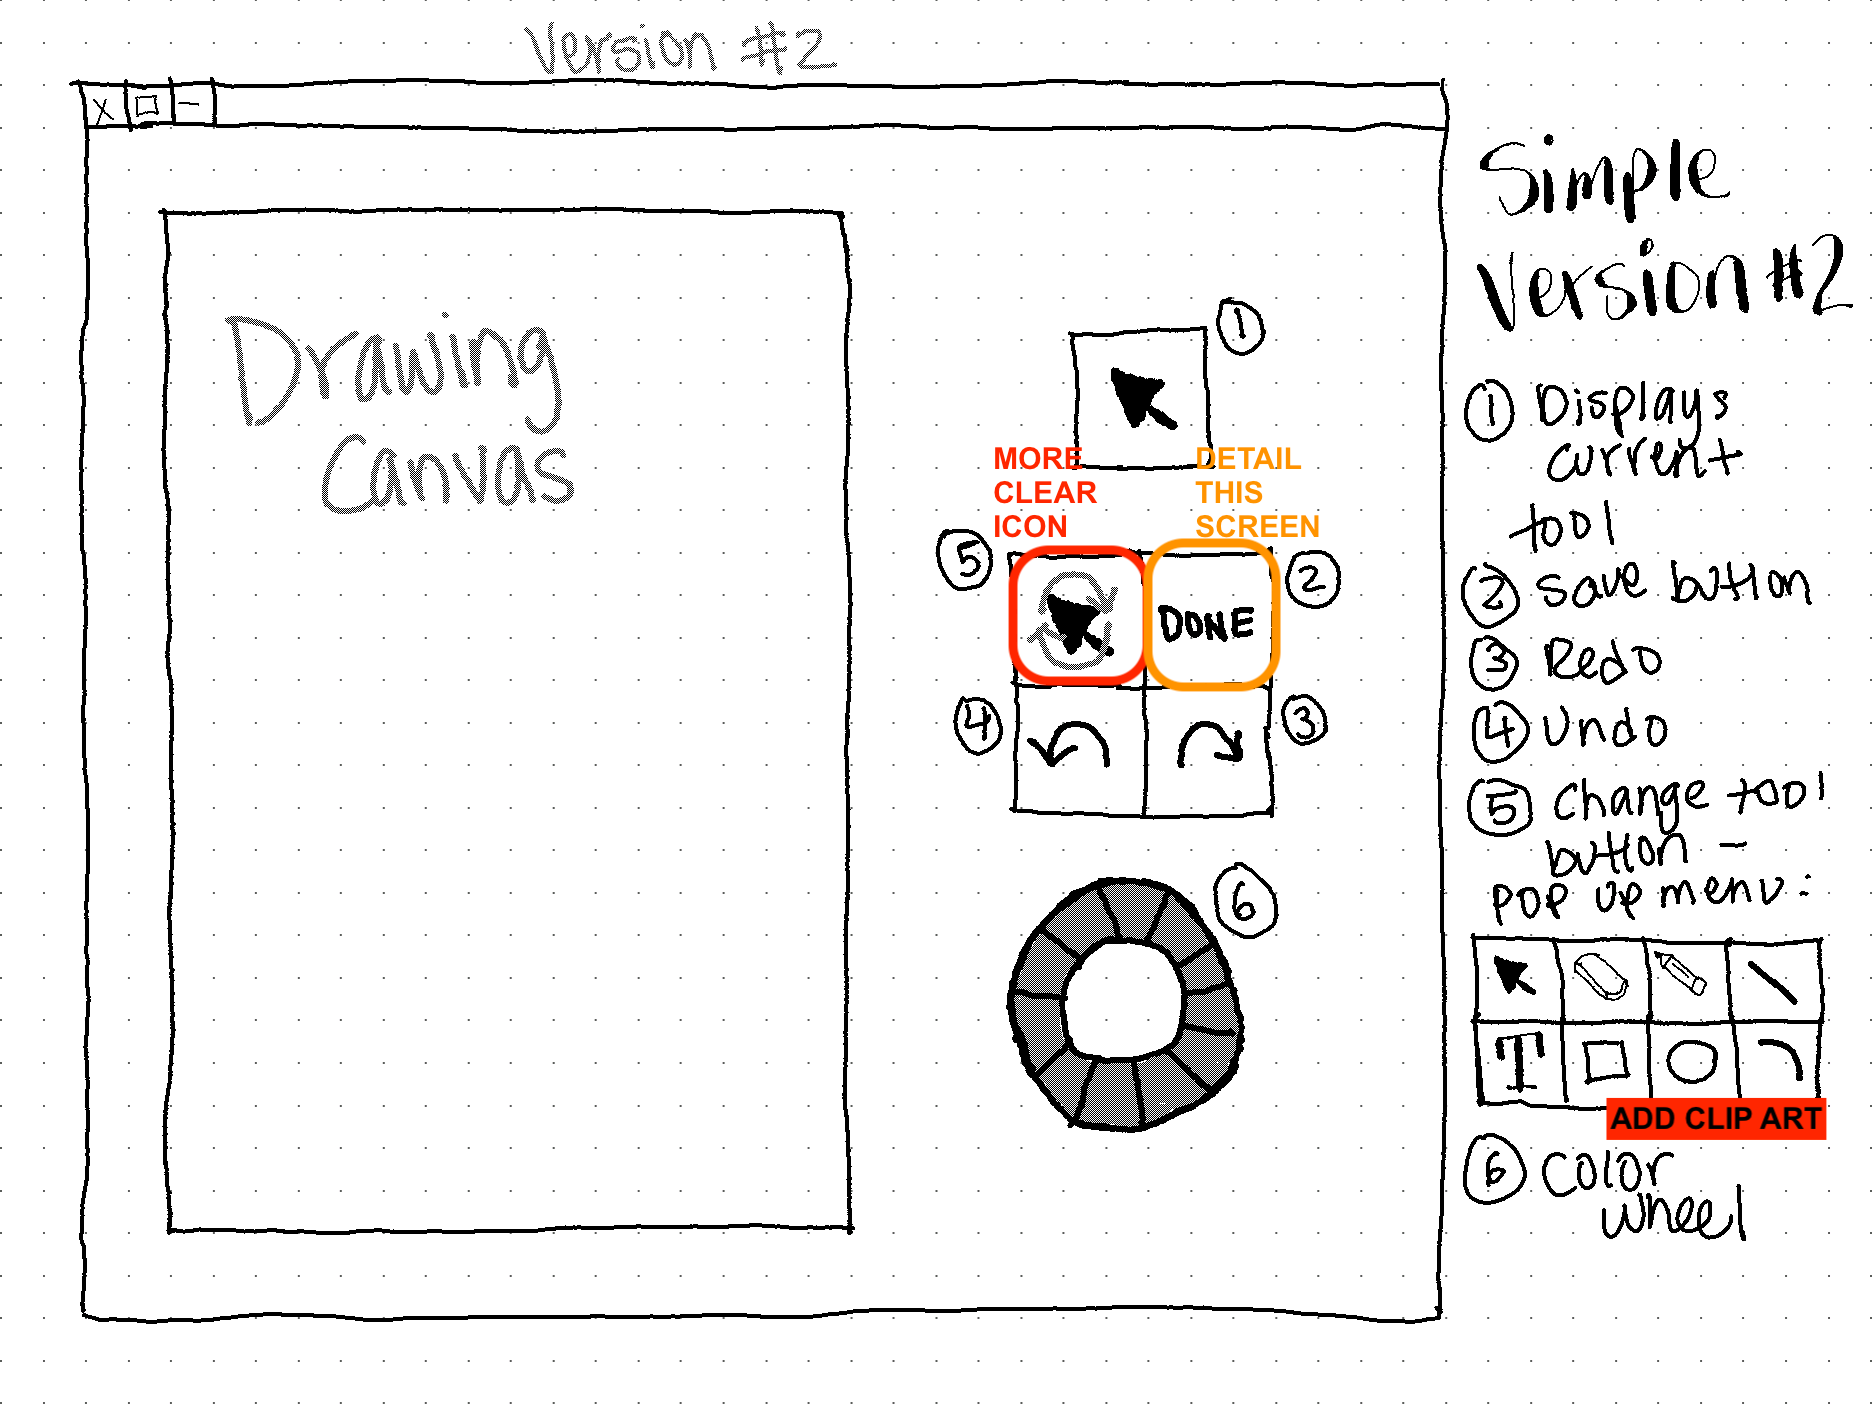 Version #2
X
Drawing
Canvas
1
MORE
CLEAR
ICON
DETAIL
THIS
SCREEN
5
DONE
2
4
3
6
Simple
Version #2
1 Displays
current
tool
2 save button
3 Redo
4 Undo
5 Change tool
button -
pop up menu:
T
ADD CLIP ART
6 Color
wheel